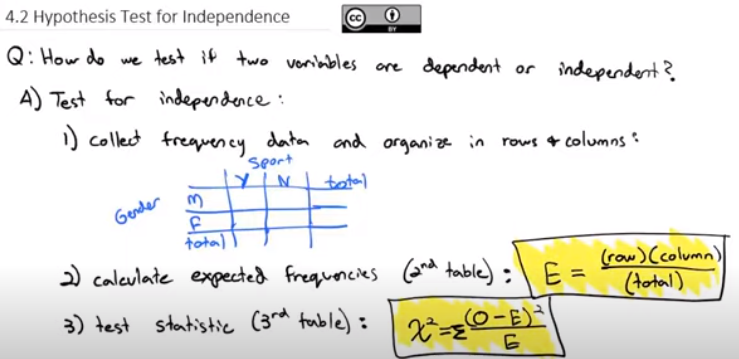 4.2 Hypothesis Test for Independence
cc BY
Q: How do we test if two variables are dependent or independent?
A) Test for independence:
1) collect frequency data and organize in rows & columns:
Sport
Y N total
Gender
M
F
total
2) calculate expected frequencies (2nd table): E = (row)(column) / (total)
3) test statistic (3rd table): χ² = Σ (O-E)² / E